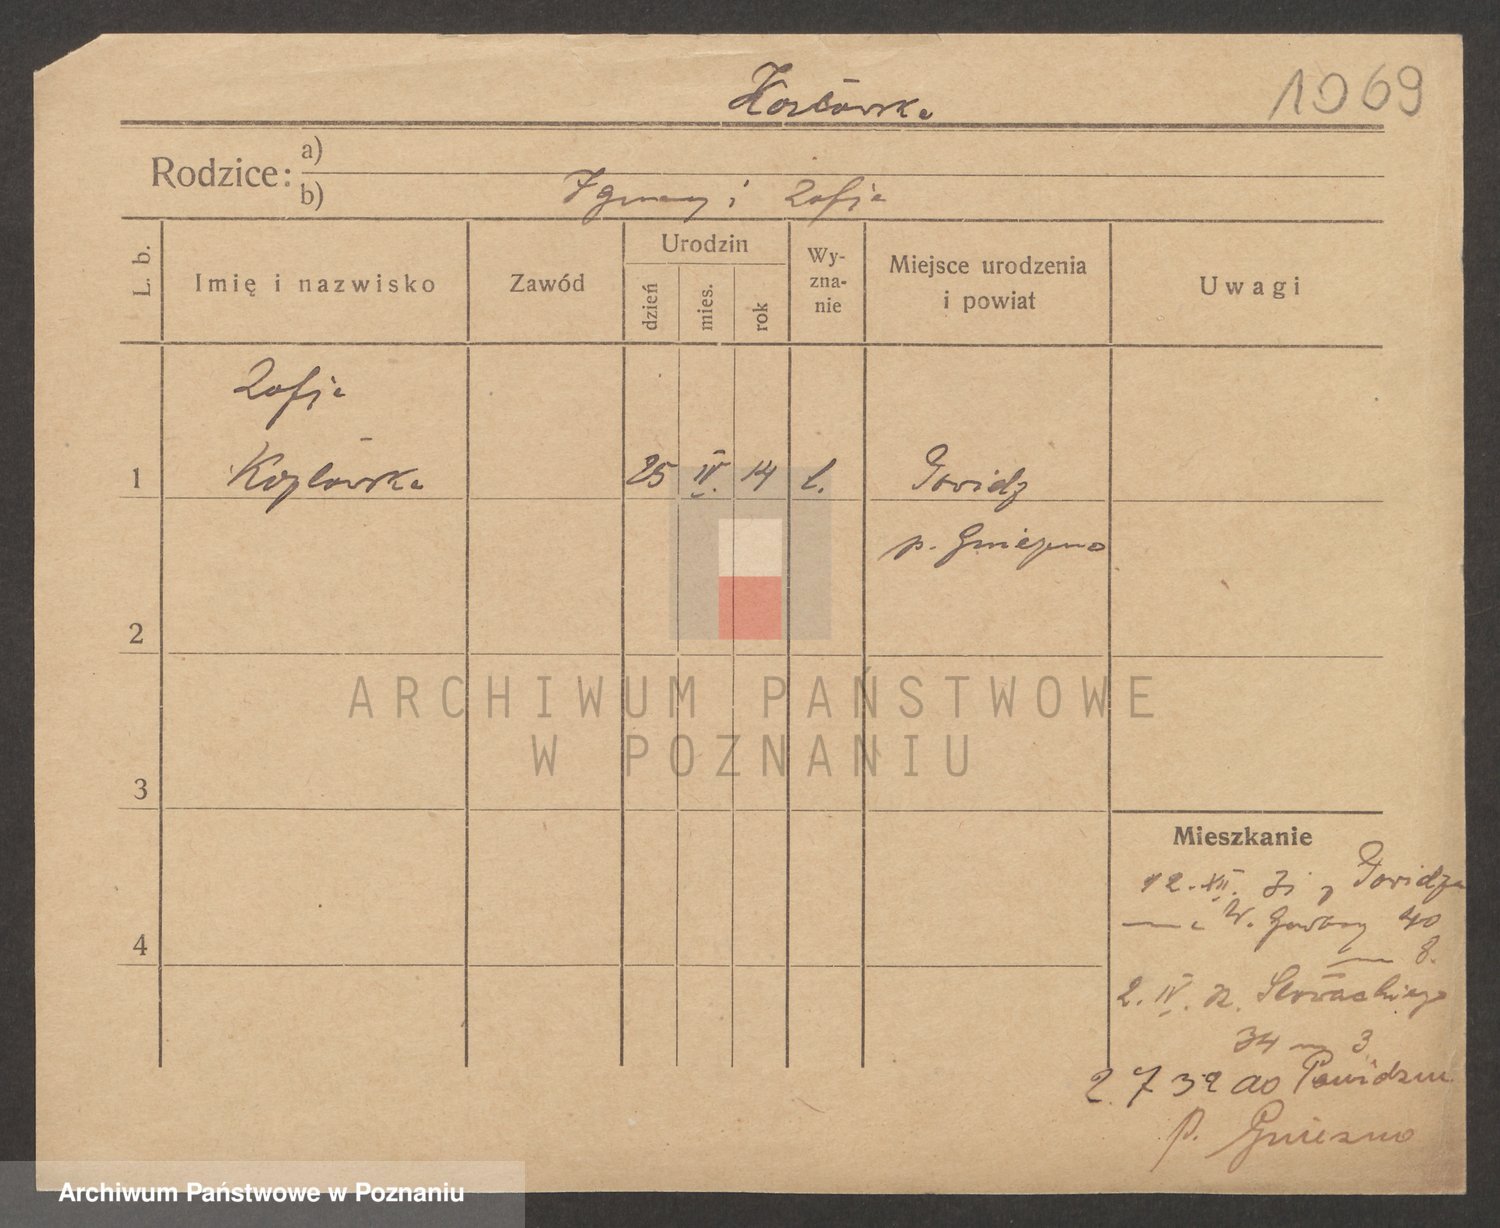 Kozłowska
1069
Rodzice:
a)
b) Ignacy i Zofja
L. b.
Imię i nazwisko
Zawód
Urodzin
dzień
mies.
rok
Wy-
zna-
nie
Miejsce urodzenia
i powiat
Uwagi
Zofja
1 Kozłowska 25 IV. 14 Powidz
p. Gniezno
2
3
4
Mieszkanie
12. XII. 31 z Powidza
W. Garbary 40
8.
2. IV. 32. Słowackiego
34 m 3
2. 7 32 do Powidzu
p. Gniezno
ARCHIWUM PAŃSTWOWE
W POZNANIU
Archiwum Państwowe w Poznaniu